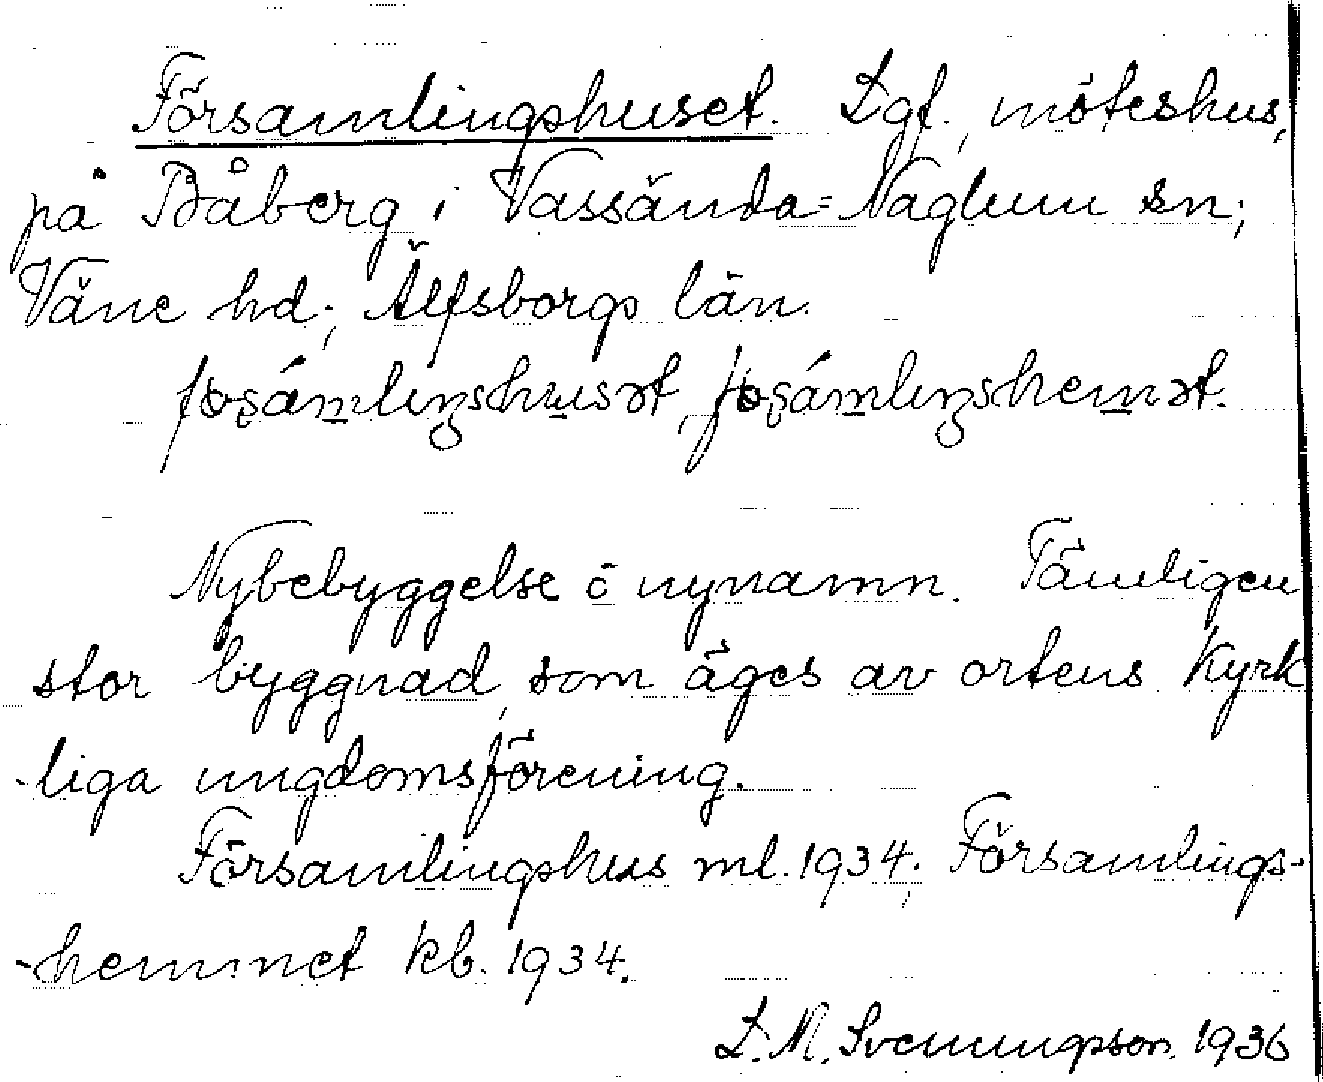 Församlingshuset. Lgf., möteshus,
på Båberg i Vassända=Naglum sn;
Väne hd; Älfsborgs län.
Nybebyggelse o nynamn. Tämligen
stor byggnad, som äges av ortens Kyrk
-liga ungdomsförening.
Församlingshus ml. 1934; Församlings-
-hemmet kb. 1934.
L. M. Svenungsson. 1936